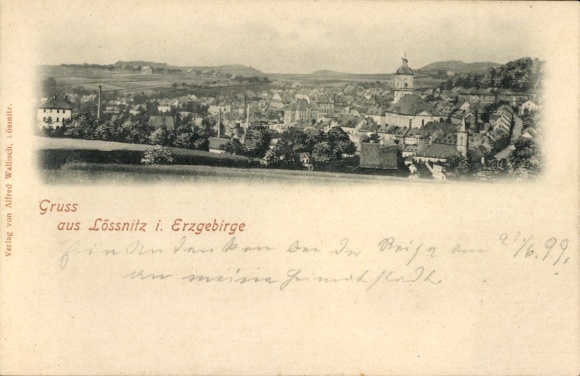 Verlag von Alfred Wallisch, Lössnitz.
Gruss
aus Lössnitz i. Erzgebirge
Ein Andenken bei der Reise am /6.99.
an meine Heimatstadt.